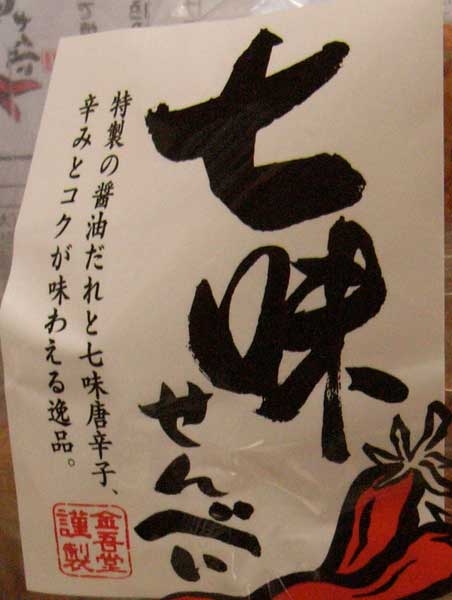 七味
せんべい
特製の醤油だれと七味唐辛子、
辛みとコクが味わえる逸品。
金吾堂
謹製